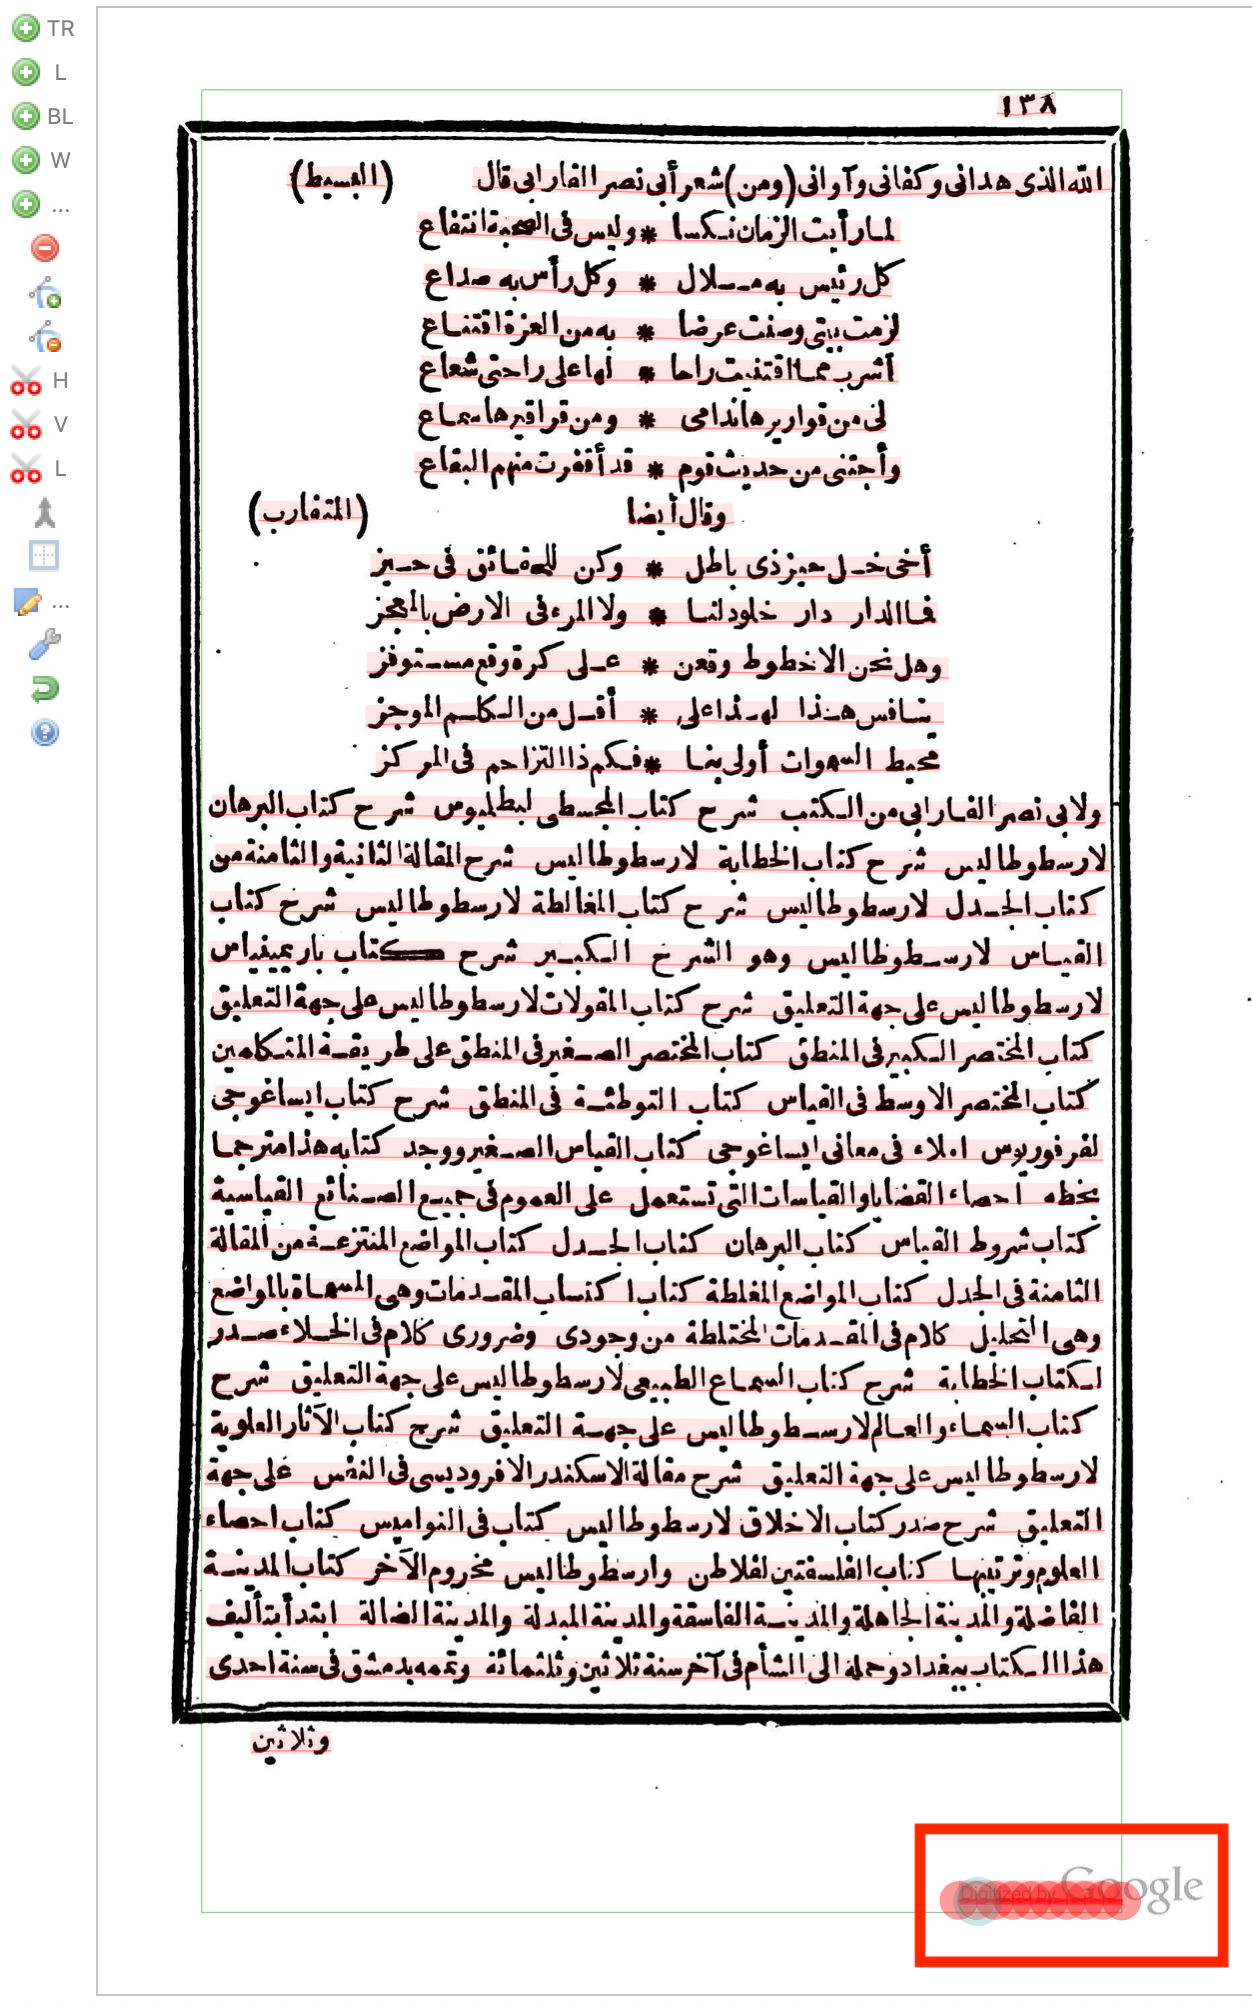 TR
L
BL
W
...
H
V
L
...
١٣٨
الله الذى هدانى وكفانى وآوانى (ومن) شعر أبى نصر الفارابى قال (البسيط)
لما رأيت الزمان نكسا * وليس فى الصحبة انتفاع
كل رئيس به ملال * وكل رأس به صداع
لزمت بيتى وصنت عرضا * به من العزة اقتناع
أشرب مما اقتنيت راحا * لها على راحتى شعاع
لى من قواريرها ندامى * ومن قراقيرها سماع
وأجتنى من حديث قوم * قد أقفرت منهم البقاع
وقال أيضا (المتقارب)
أخى خل حيز ذى باطل * وكن للحقائق فى حيز
فما الدار دار خلود لنا * ولا المرء فى الارض بالمعجز
وهل نحن الا خطوط وقعن * على كرة وقع مستوفز
ينافس هذا لهذا على * أقل من الكلم الموجز
محيط السموات أولى بنا * فكم ذا التزاحم فى المركز
ولابى نصر الفارابى من الكتب شرح كتاب المجسطى لبطلميوس شرح كتاب البرهان
لارسطوطاليس شرح كتاب الخطابة لارسطوطاليس شرح المقالة الثانية والثامنة من
كتاب الجدل لارسطوطاليس شرح كتاب المغالطة لارسطوطاليس شرح كتاب
القياس لارسطوطاليس وهو الشرح الكبير شرح كتاب باريمينياس
لارسطوطاليس على جهة التعليق شرح كتاب المقولات لارسطوطاليس على جهة التعليق
كتاب المختصر الكبير فى المنطق كتاب المختصر الصغير فى المنطق على طريقة المتكلمين
كتاب المختصر الاوسط فى القياس كتاب التوطئة فى المنطق شرح كتاب ايساغوجى
لفرفوريوس املاء فى معانى ايساغوجى كتاب القياس الصغير ووجد كتابه هذا مترجما
بخطه احصاء القضايا والقياسات التى تستعمل على العموم فى جميع الصنائع القياسية
كتاب شروط القياس كتاب البرهان كتاب الجدل كتاب المواضع المنتزعة من المقالة
الثامنة فى الجدل كتاب المواضع المغلطة كتاب اكتساب المقدمات وهى المسماة بالمواضع
وهى التحليل كلام فى المقدمات المختلطة من وجودى وضرورى كلام فى الخلاء صدر
لكتاب الخطابة شرح كتاب السماع الطبيعى لارسطوطاليس على جهة التعليق شرح
كتاب السماء والعالم لارسطوطاليس على جهة التعليق شرح كتاب الآثار العلوية
لارسطوطاليس على جهة التعليق شرح مقالة الاسكندر الافروديسى فى النفس على جهة
التعليق شرح صدر كتاب الاخلاق لارسطوطاليس كتاب فى النواميس كتاب احصاء
العلوم وترتيبها كتاب الفلسفتين لفلاطن وارسطوطاليس مخروم الآخر كتاب المدينة
الفاضلة والمدينة الجاهلة والمدينة الفاسقة والمدينة المبدلة والمدينة الضالة ابتدأ بتأليف
هذا الكتاب ببغداد وحمله الى الشأم فى آخر سنة ثلاثين وثلثمائة وتممه بدمشق فى سنة احدى
وثلاثين
Digitized by Google